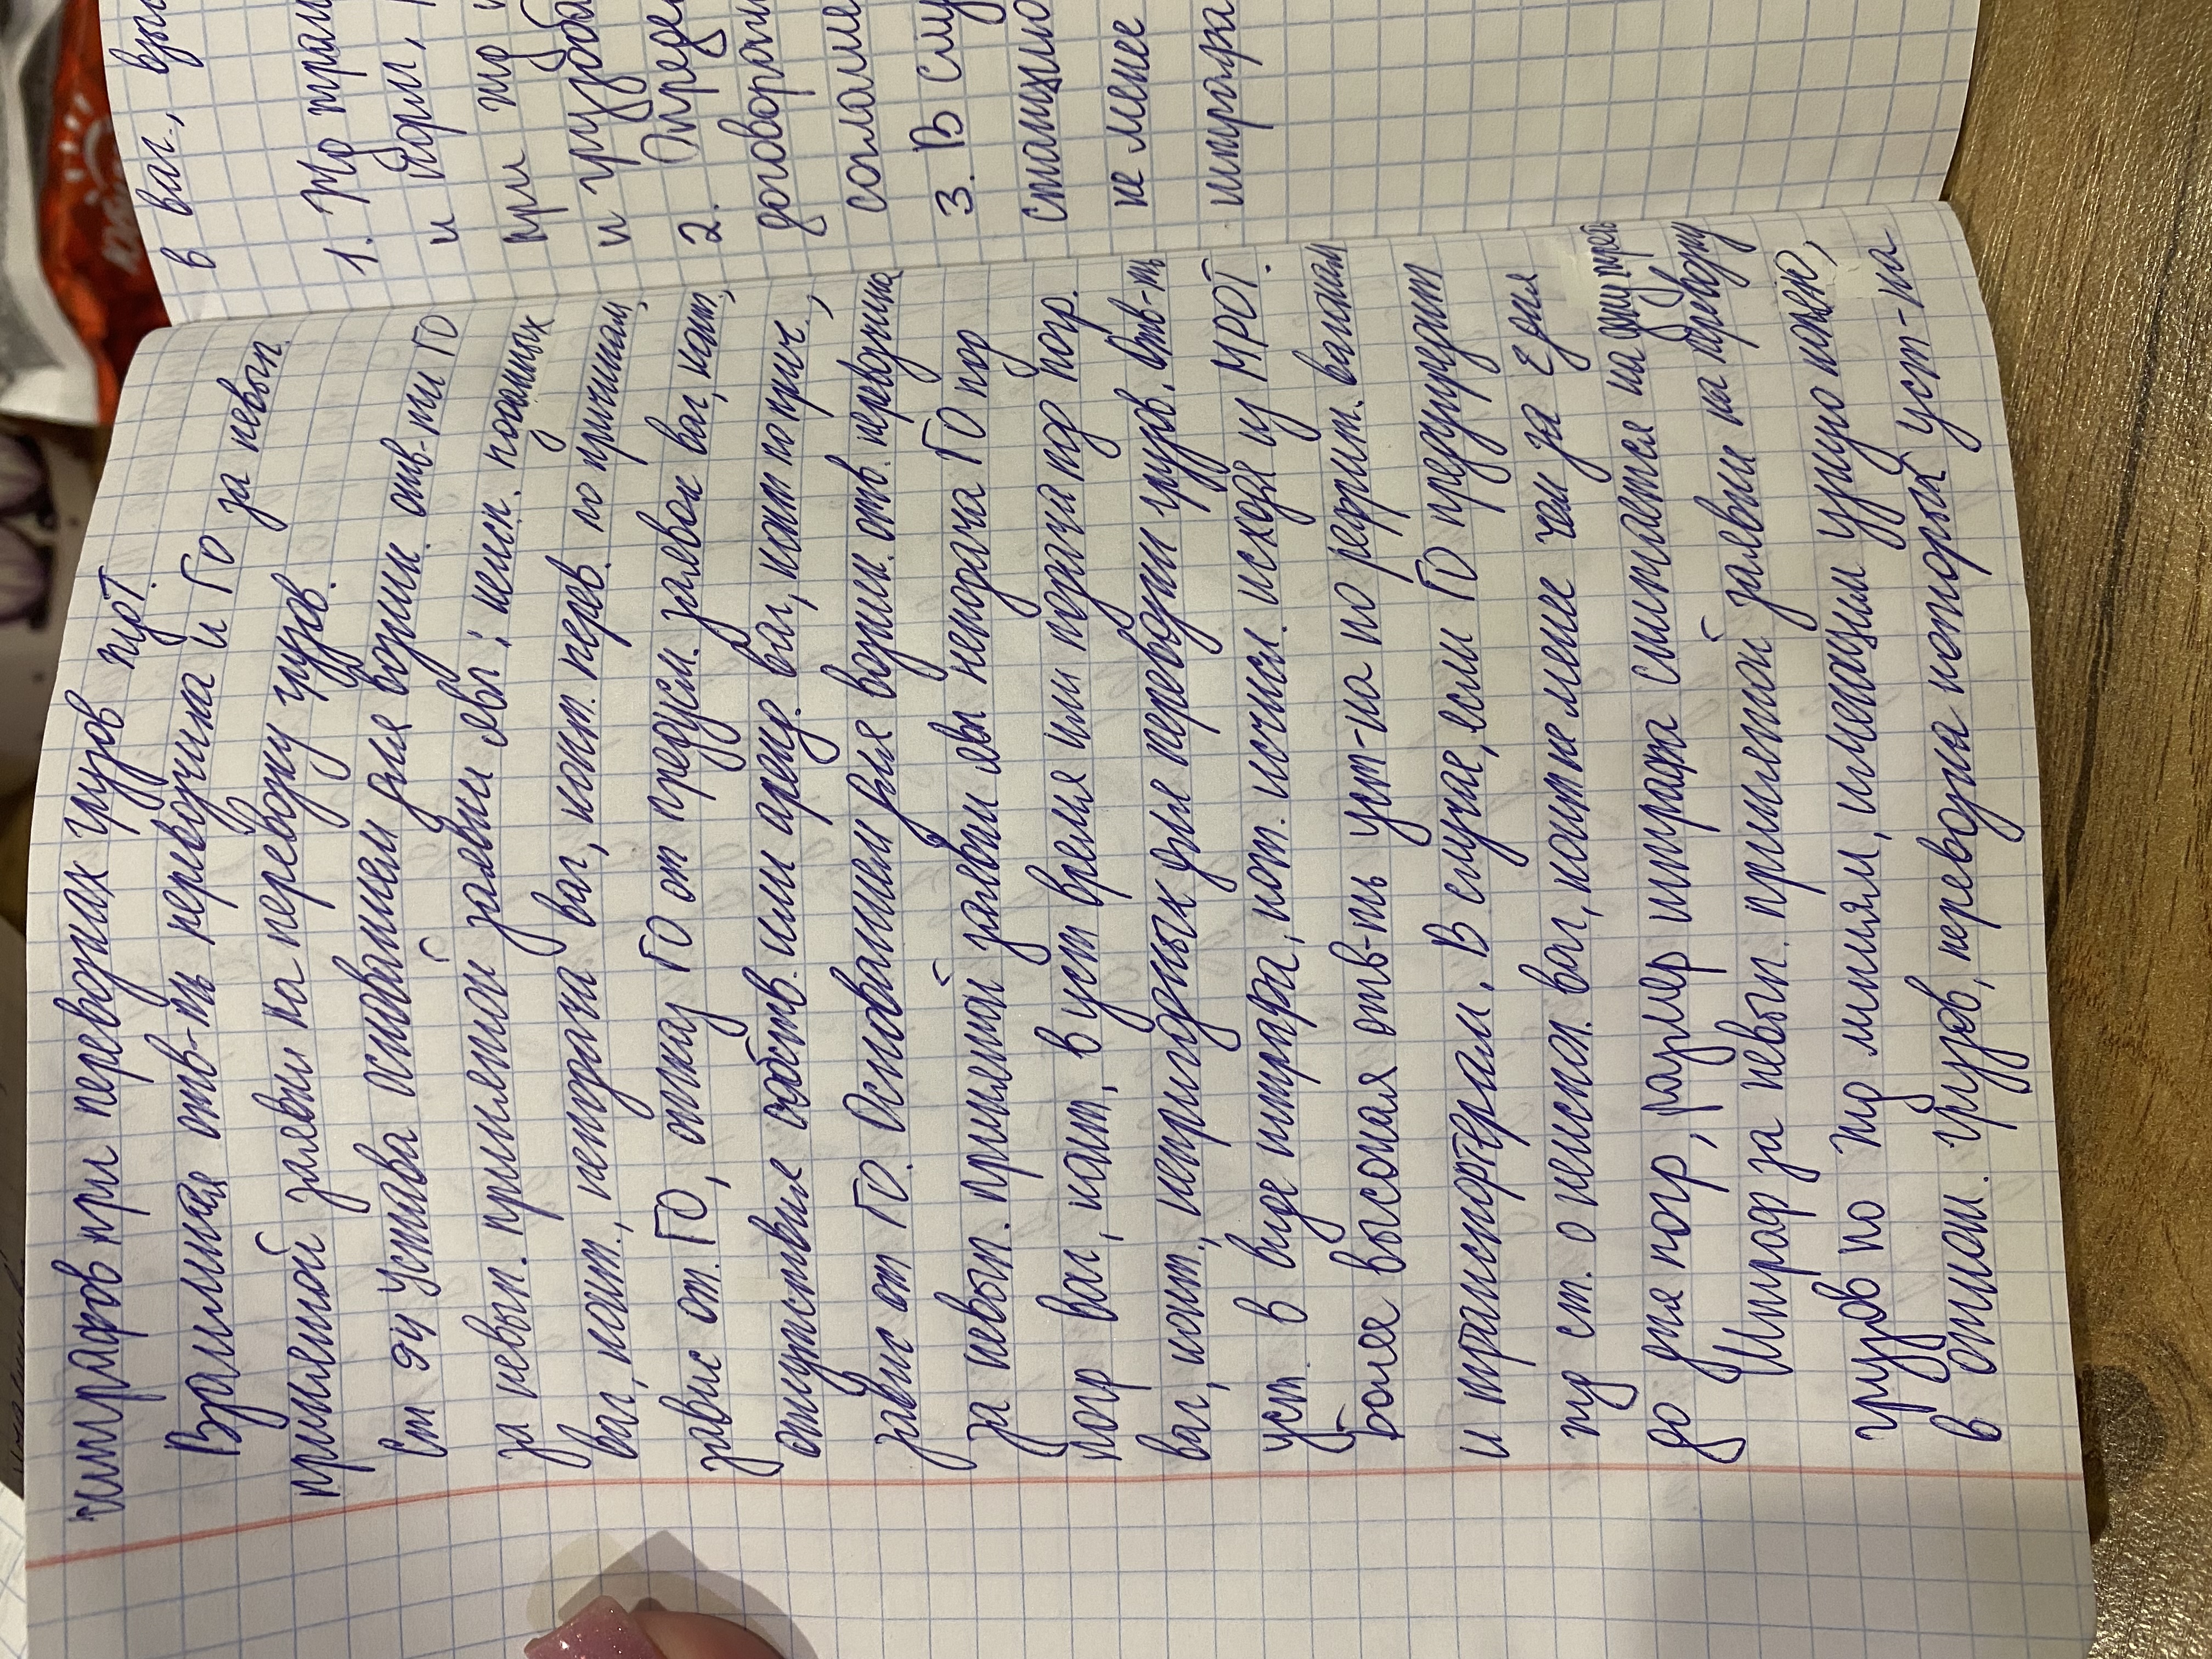 штрафов при перевозках грузов тут.
Взаимная отв-ть перевозчика и ГО за невып.
принятой заявки на перевозку грузов.
Ст 94 Устава основанием для возник. отв-ти ГО
за невып. принятой заявки явл: неисп. поданных
ваг, конт., неподача ваг, конт. перев. по причинам,
завис от. ГО, отказ ГО от предусм. заявок ваг, конт,
отсутствие собств. или аренд. ваг, конт по прич.,
завис от ГО. Основанием для возник. отв. перевозчика
за невып. принятой заявки явл неподача ГО под
погр ваг, конт, в уст время или подача под погр.
ваг, конт., непригодных для перевозки грузов. Отв-ть
уст. в виде штрафа, кот. исчисл. исходя из МРОТ.
Более высокая отв-ть уст-на по рефриж. вагонам
и транспортерам. В случае, если ГО предупредит
жд ст. о неиспол. ваг, конт не менее чем за 2 дня
до дня погр, размер штрафа снижается на одну треть
Штраф за невып. принятой заявки на перевозку
грузов по жд линиям, имеющим узкую колею,
в отнош. грузов, перевозка которых уст-на
в ваг., взы
1. По тран
и норм,
при жд
и грузоба
2. Опреде
договорам
соглаше
3. В слу
станцию
не менее
штрафа